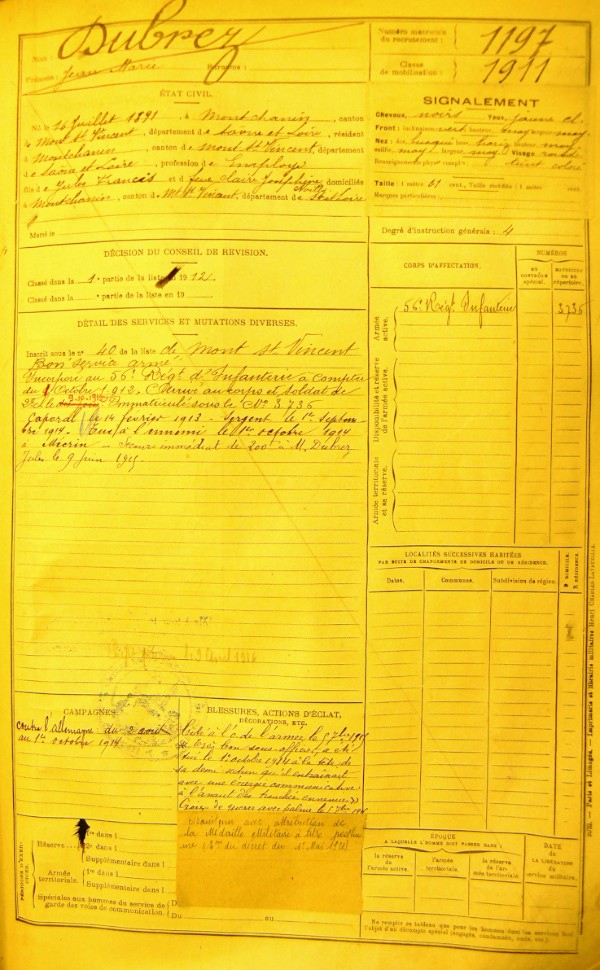 Nom : Dubrez
Prénoms : Jean Marie Surnoms :
Numéro matricule du recrutement : 1197
Classe de mobilisation : 1911
ÉTAT CIVIL.
Né le 26 Juillet 1891, à Montchanin, canton
de Mont St Vincent, département de Saône et Loire, résidant
à Montchanin, canton de Mont St Vincent, département
de Saône et Loire, profession de Employé
fils de Jules Francois et de feue Claire Joséphine domiciliés
à Montchanin, canton de Mt St Vincent, département de S et Loire
Marié le
SIGNALEMENT
Cheveux, noirs Yeux, jaune cl.
Front : inclinaison vert. hauteur, moy. largeur, moy.
Nez : dos, base, horiz. hauteur, moy.
saillie, moy. largeur, moy. Visage rond
Renseignements physiq. complre. teint coloré
Taille : 1 mètre 61 cent., Taille rectifiée : 1 mètre cent.
Marques particulières :
Degré d'instruction générale : 4
DÉCISION DU CONSEIL DE REVISION.
Classé dans la 1e partie de la liste en 1912.
Classé dans la e partie de la liste en 19
DÉTAIL DES SERVICES ET MUTATIONS DIVERSES.
Inscrit sous le n° 40 de la liste de Mont St Vincent
Bon service armé
Incorporé au 56e Régt d'Infanterie à compter
du Octobre 1912. Arrivé au corps et soldat de
2e cl. le 9-10-1912 Immatriculé sous le No 3736
Caporal le 14 février 1913 - Sergent le 1er Septem-
bre 1914. Tué à l'ennemi le 1er octobre 1914
à - Secours immédiat de 200f à M. Dubrez
Jules le 9 Juin 1915.
CORPS D'AFFECTATION.
NUMÉROS
au contrôle spécial.
matricule ou au répertoire.
Armée active.
56e Régt Infanterie
3736
Disponibilité et réserve de l'armée active.
Armée territoriale et sa réserve.
LOCALITÉS SUCCESSIVES HABITÉES
PAR SUITE DE CHANGEMENTS DE DOMICILE OU DE RÉSIDENCE.
Dates.
Communes.
Subdivision de région.
D DOMICILE.
R RÉSIDENCE.
CAMPAGNES.
contre l'allemagne du 2 août
au 1er octobre 1914
BLESSURES, ACTIONS D'ÉCLAT,
DÉCORATIONS, ETC.
Cité à l'o. de l'armée le 7
« très bon sous-officier, a été
tué le 1er octobre 1914 à la tête de
sa demi section qu'il entraînait
avec une énergie communicative
à l'assaut des tranchées ennemies »
Croix de guerre avec palme
avec attribution de
la Médaille Militaire à titre posthu
me du décret du 1er Mai
PÉRIODES D'EXERCICES.
Réserve
1re dans l
2e dans l
Supplémentaire dans l
Armée territoriale.
1re dans l
Supplémentaire dans l
Spéciales aux hommes du service de
garde des voies de communication.
Du ou
ÉPOQUE
A LAQUELLE L'HOMME DOIT PASSER DANS :
la réserve de l'armée active.
l'armée territoriale.
la réserve de l'armée territoriale.
DATE
DE LA LIBÉRATION DU service militaire.
Ne remplir ce tableau que pour les hommes dont les services font
l'objet d'un décompte spécial (engagés, condamnés, omis, etc.).
Paris et Limoges. — Imprimerie et librairie militaires Henri CHARLES-LAVAUZELLE.